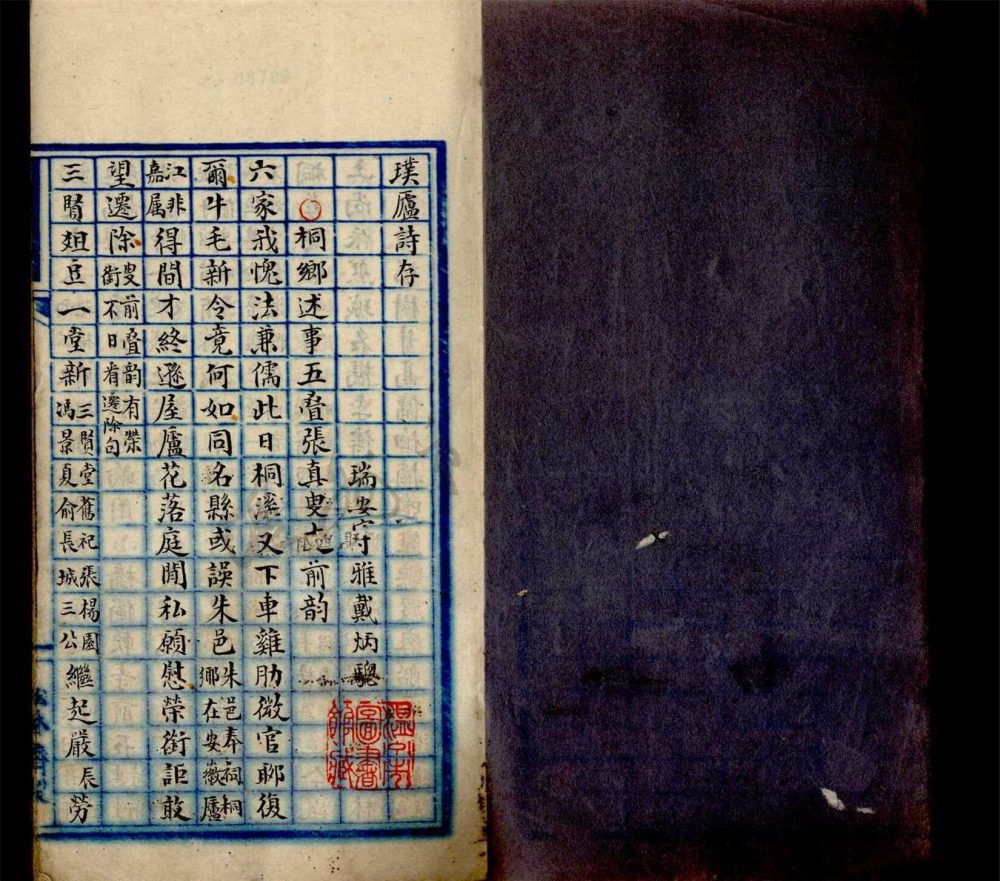 璞廬詩存
瑞安守雅戴炳驄
桐鄉述事五疊張真叟前韵
六家我愧法兼儒此日桐溪又下車雞肋微官聊復
爾牛毛新令竟何如同名縣或誤朱邑朱邑奉祠桐鄉在安徽廬
江非嘉属得間才終遜屋廬花落庭閒私願慰榮銜詎敢
望遷除叟前疊韵有榮銜不日看遷除句
三賢俎豆一堂新三賢堂舊祀張楊園馮景夏俞長城三公繼起嚴辰勞
溫州市圖書館藏